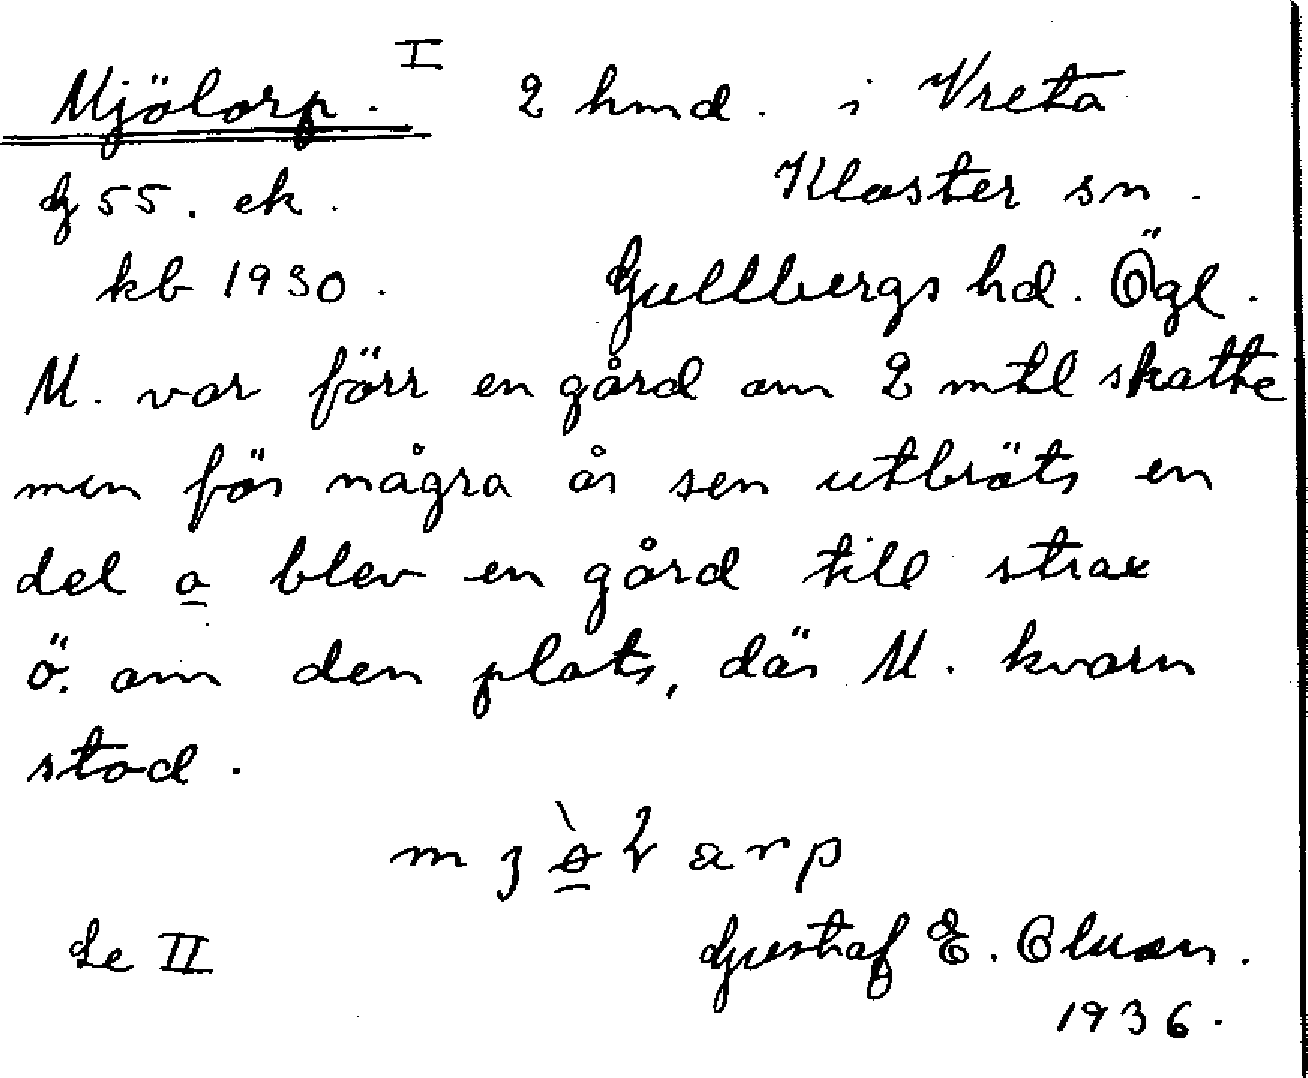 Mjölorp. I 2 hmd. i Vreta
G 55. ek. Kloster sn.
kb 1930. Gullbergs hd. Ögl.
M. var förr en gård om 2 mtl skatte
men för några år sen utbröts en
del o blev en gård till strax
ö. om den plats, där M. kvarn
stod.
arp
Se II Gustaf E. Olsson.
1936.